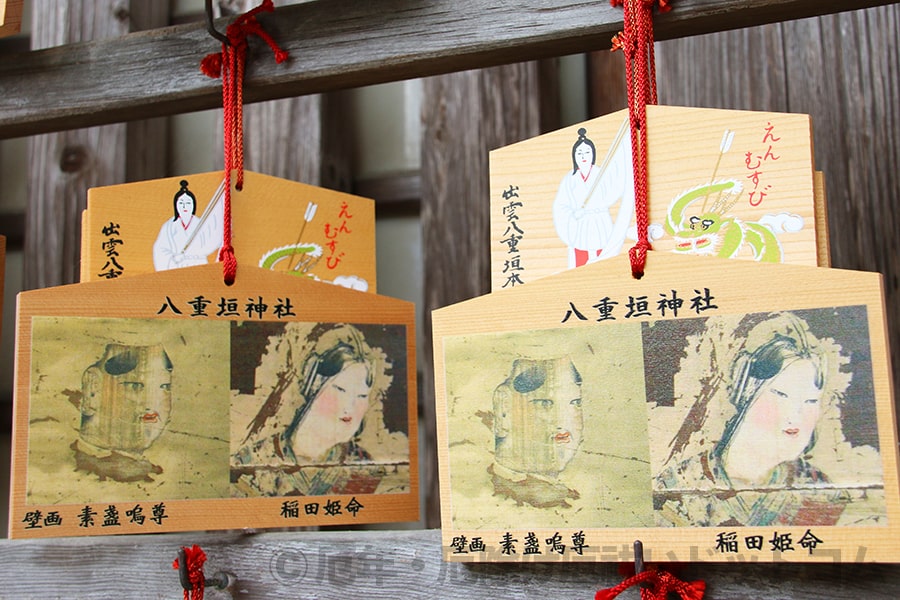 えん
むすび
出雲八重
八重垣神社
壁画 素盞嗚尊
稲田姫命
えん
むすび
出雲八重垣本
八重垣神社
壁画 素盞嗚尊
稲田姫命